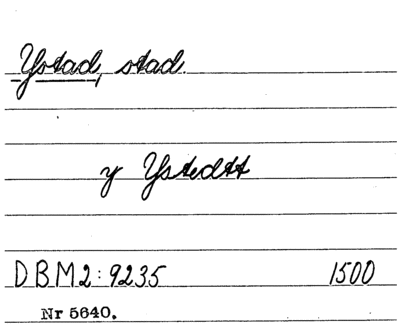 Ystad, stad.
y Ystedtt
DBM2:9235 1500
Nr 5640.